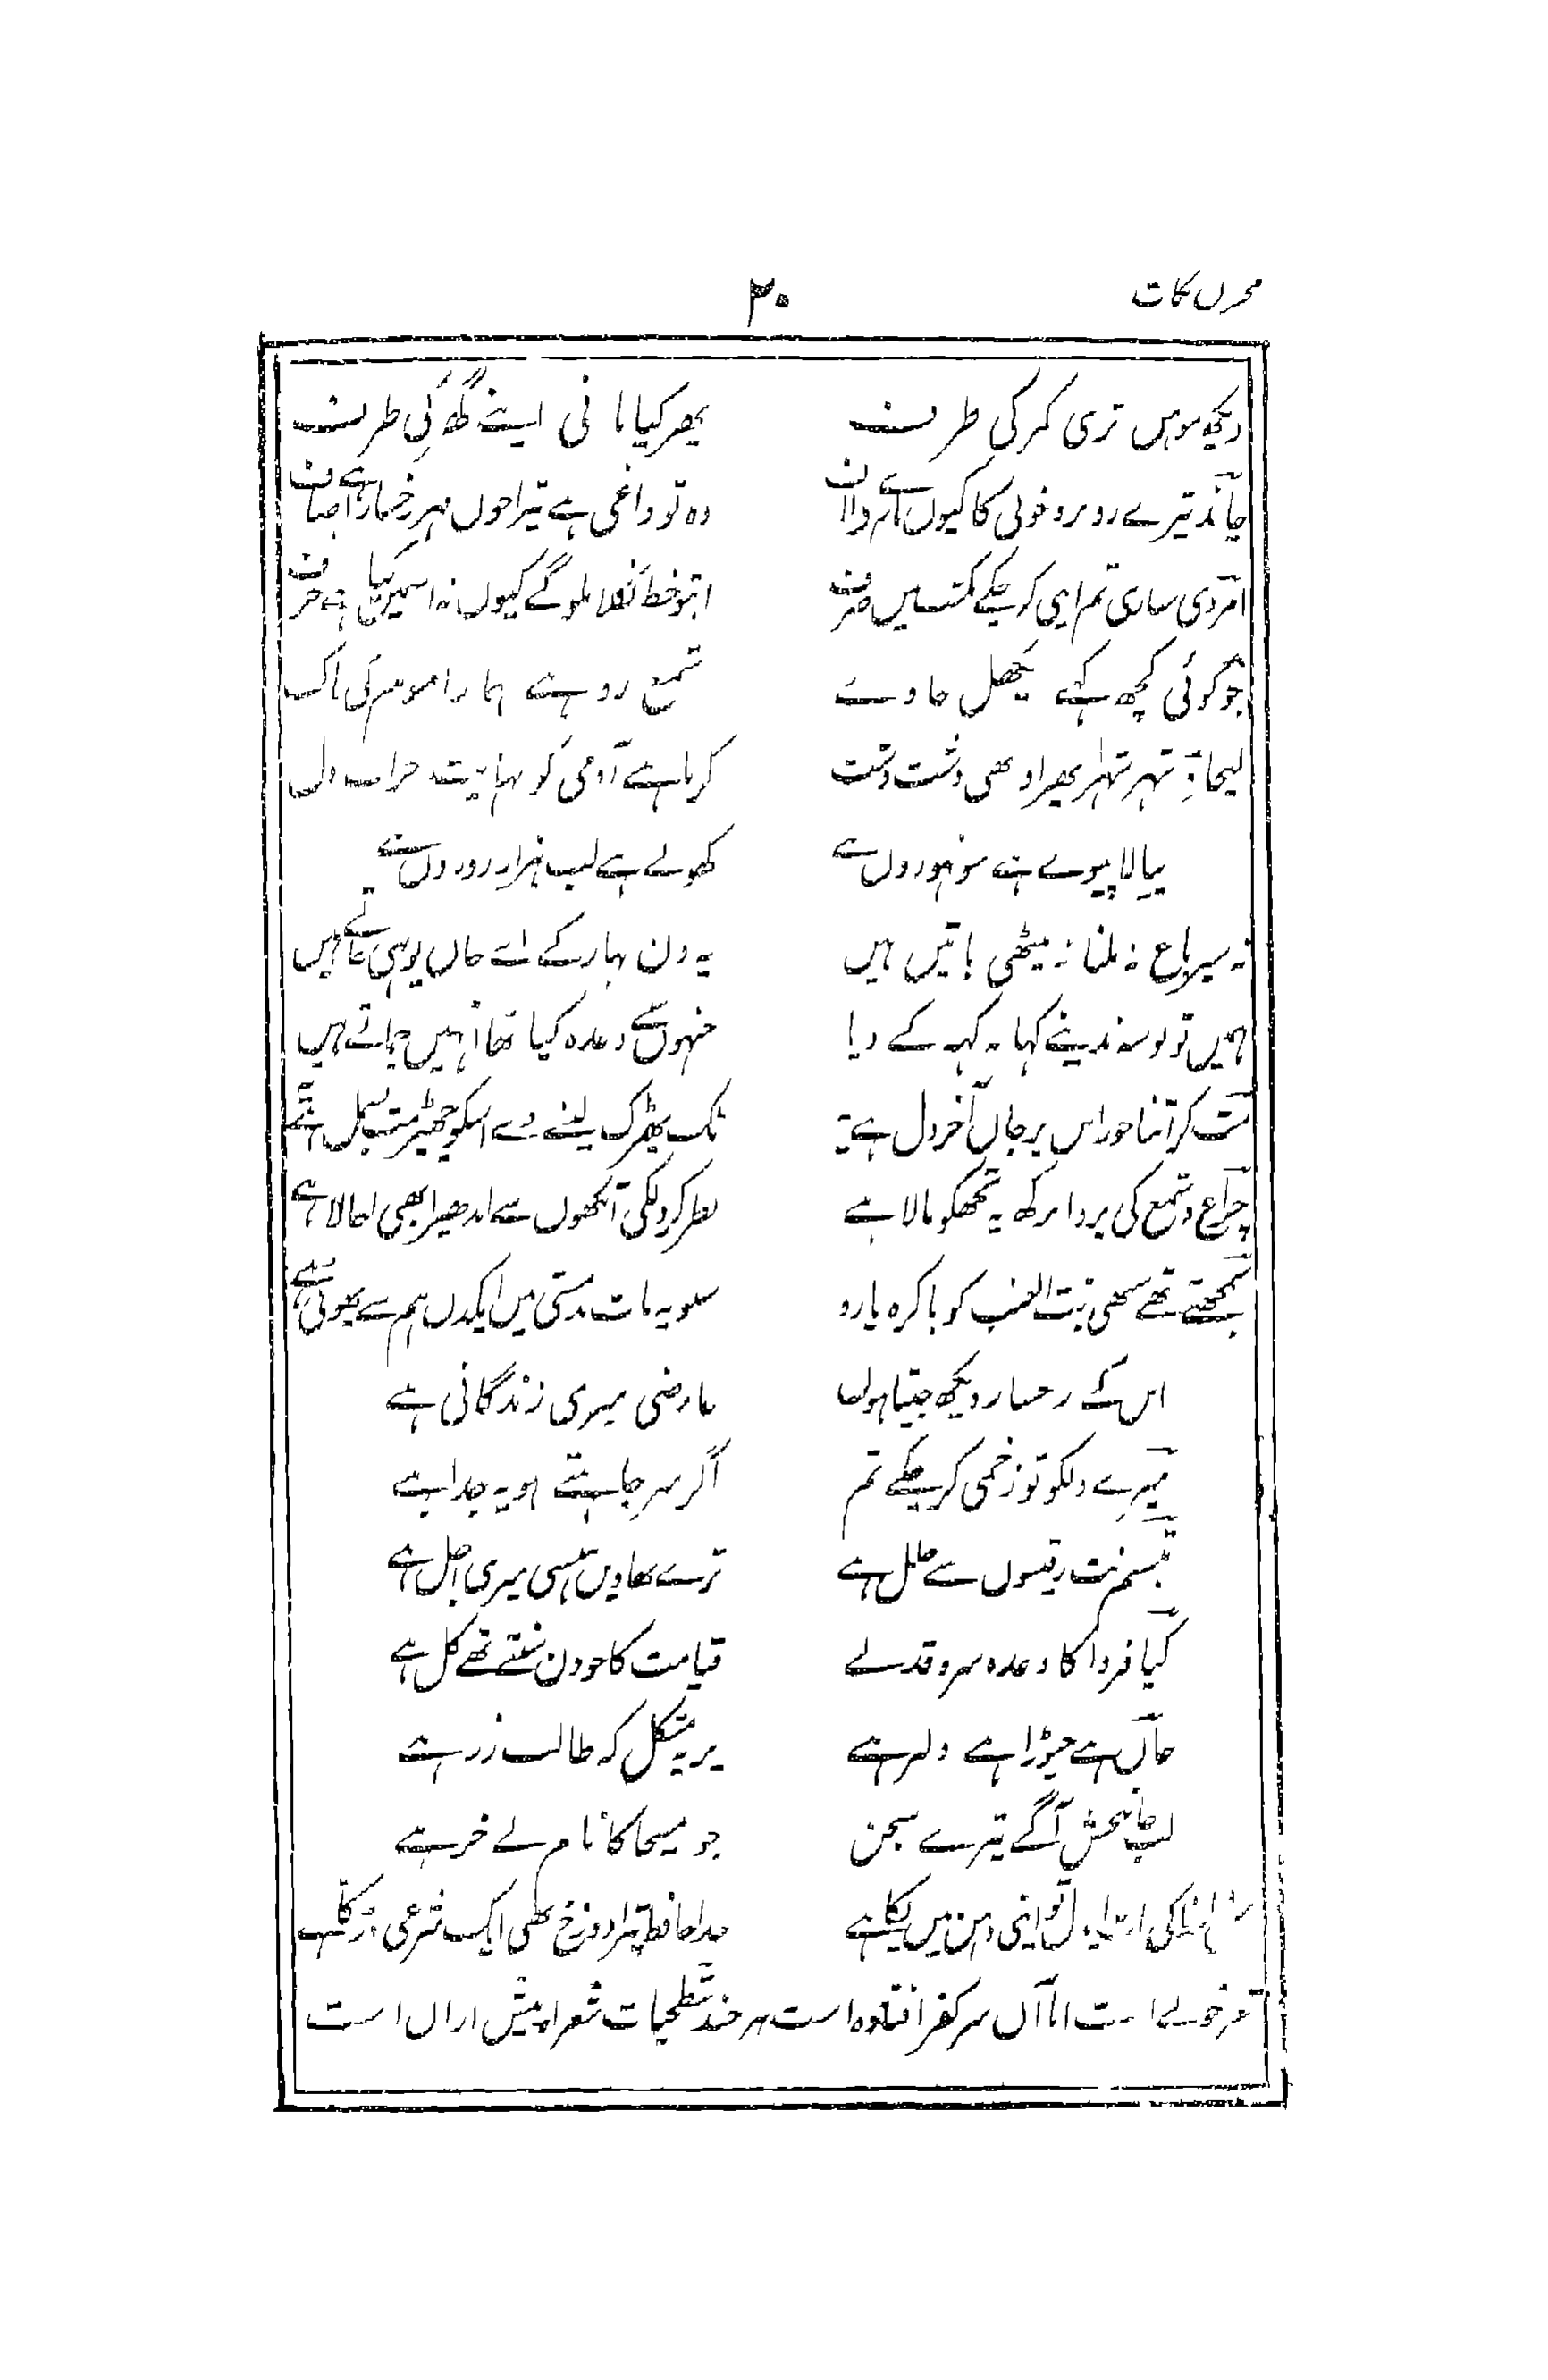 مخزن نکات
۲۰
دیکھ موہن تری کمر کی طرف    پھر گیا مانی اپنے گھر کی طرف
چاند تیرے روبرو خوبی کا کیوں    وہ تو داغی ہے تیرا جوں مہر رخسارا ہے صاف
امردی ساری تم اپنی کر چکے مکتب میں صرف    اب تو خط نکلا ملو گے کیوں نہ اسمیں کیا ہے حرف
جو کوئی کچھ کہے پگھل جاوے    شمع رو ہے ہمارا موم کی ناک
لیجا شہر شہر پھراوے دشت دشت    کرتا ہے آدمی کو نہایت خراب دل
پیالا پیوے ہے سو ہو ردول سے    کھولے ہے لب ہزار دور دل سے
نہ سیر باغ نہ ملنا نہ میٹھی باتیں ہیں    یہ دن بہار کے اے جان یوں ہی جاتے ہیں
ہمیں تو بوسہ نہ دینے کہا نہ کہہ کے دیا    جنہوں سے وعدہ کیا تھا انہیں چماتے ہیں
مت کر اتنا جور اس پر جان آخر دل ہے    ٹک پھڑک لینے دے اسکو چھیڑ مت بسمل ہے
چراغ و شمع کی پروا نہ رکھ یہ تجھکو بالا ہے    نظر کر دلکی آنکھوں سے اندھیرا بھی اجالا ہے
سمجھتے تھے سبھی بنت العنب کو باکرہ یارو    سو یہ بات مستی میں ایکدن ہم سے پھوٹی ہے
اس کے رخسار دیکھ جیتا ہوں    عارضی میری زندگانی ہے
میرے دلکو تو زخمی کر چکے تم    اگر سر چاہتے ہو یہ جدا ہے
تبسم مت رقیبوں سے ملل ہے    ترے بھاویں ہنسی میری اجل ہے
کیا فردا کا وعدہ سرو قد نے    قیامت کا جو دن سنتے تھے کل ہے
جان ہے جیوڑا ہے دلبر ہے    پر یہ مشکل کہ طالب زر ہے
لب جاں بخش آگے تیرے سجن    جو مسیحا کا نام لے خر ہے
کی دل تو اپنی دہن میں پکا ہے    خدا حافظ تیرا دوزخ بھی ایک شرعی درکا ہے
خوب است اما آں سر کفر افتادہ است ہر چند شطحیات شعرا پیش ازاں است